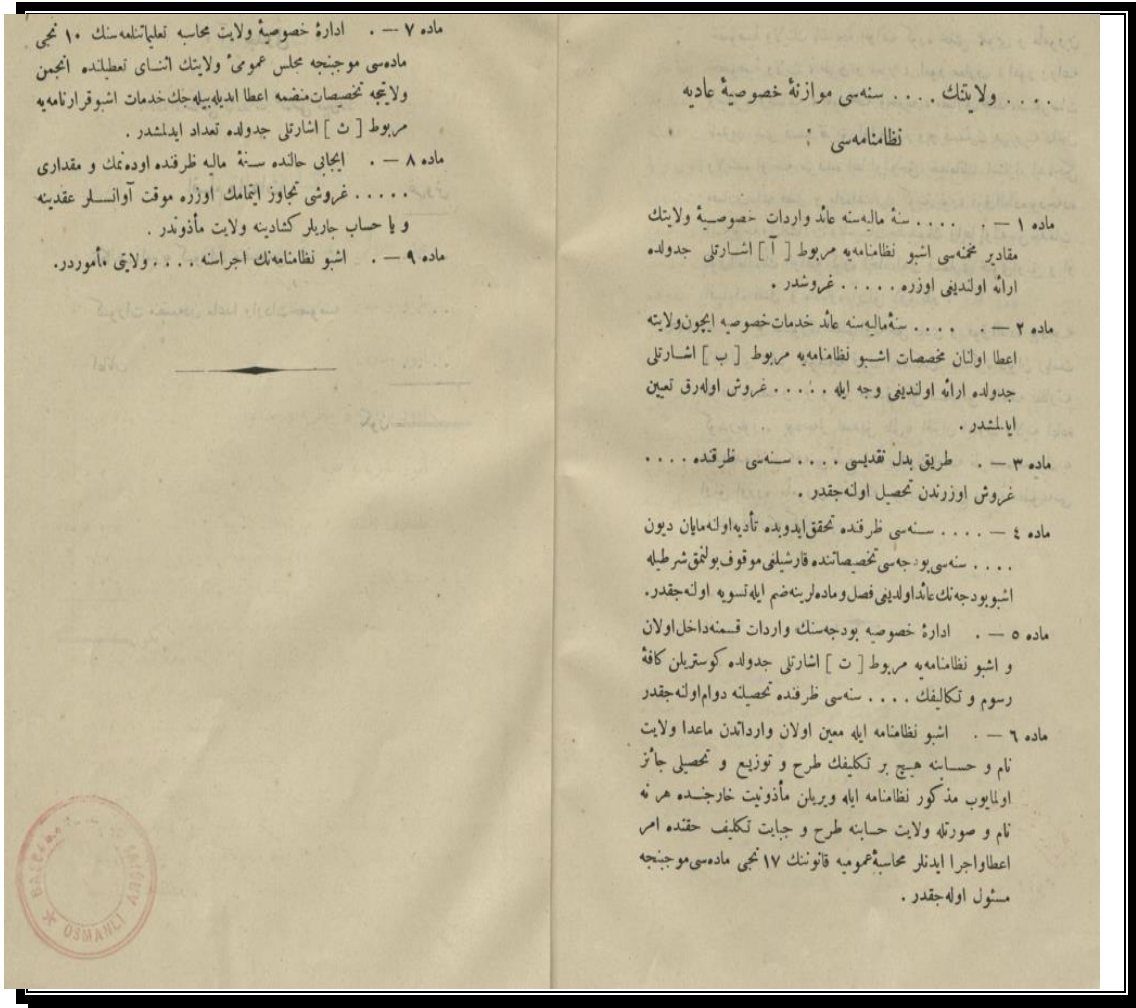 . . . . ولايتك . . . . سنه‌سى موازنۀ خصوصيۀ عاديه
نظامنامه‌سى :
ماده ١ — . . . . . سنۀ ماليه‌سنه عائد واردات خصوصيۀ ولايتك
مقادير مخمنه‌سى اشبو نظامنامه‌يه مربوط [ آ ] اشارتلى جدولده
ارائه اولنديغى اوزره . . . . . غروشدر .
ماده ٢ — . . . . . سنۀ ماليه‌سنه عائد خدمات خصوصيه ايچون ولايته
اعطا اولنان مخصصات اشبو نظامنامه‌يه مربوط [ ب ] اشارتلى
جدولده ارائه اولنديغى وجه ايله . . . . . غروش اوله‌رق تعيين
ايدلمشدر .
ماده ٣ — . طريق بدل نقديسى . . . . سنه‌سى ظرفنده . . . .
غروش اوزرندن تحصيل اولنه‌جقدر .
ماده ٤ — . . . . سنه‌سى ظرفنده تحقق ايدوبده تأديه اولنه‌مايان ديون
. . . . سنه‌سى بودجه‌سى تخصيصاتنده قارشيلغى موقوف بولنمق شرطيله
اشبو بودجه‌نك عائد اولديغى فصل و ماده‌لرينه ضم ايله تسويه اولنه‌جقدر.
ماده ٥ — . ادارۀ خصوصيه بودجه‌سنك واردات قسمنه داخل اولان
و اشبو نظامنامه‌يه مربوط [ ت ] اشارتلى جدولده كوستريلن كافۀ
رسوم و تكاليفك . . . . سنه‌سى ظرفنده تحصيلنه دوام اولنه‌جقدر
ماده ٦ — . اشبو نظامنامه ايله معين اولان وارداتدن ماعدا ولايت
نام و حسابنه هيچ بر تكليفك طرح و توزيع و تحصيلى جائز
اولمايوب مذكور نظامنامه ايله ويريلن مأذونيت خارجنده هر نه
نام و صورتله ولايت حسابنه طرح و جبايت تكليف حقنده امر
اعطا و اجرا ايدنلر محاسبۀ عموميه قانوننك ١٧ نجى ماده‌سى موجبنجه
مسئول اوله‌جقدر .
ماده ٧ — . ادارۀ خصوصيۀ ولايت محاسبه تعليماتنامه‌سنك ١٠ نجى
ماده‌سى موجبنجه مجلس عمومئ ولايتك اثناى تعطيلنده انجمن
ولايتجه تخصيصات منضمه اعطا ايديله‌بيله‌جك خدمات اشبو قرارنامه‌يه
مربوط [ ث ] اشارتلى جدولده تعداد ايدلمشدر .
ماده ٨ — . ايجابى حالنده سنۀ ماليه ظرفنده اوده‌نمك و مقدارى
. . . . . غروشى تجاوز ايتمامك اوزره موقت آوانسلر عقدينه
و يا حساب جاريلر كشادينه ولايت مأذوندر .
ماده ٩ — . اشبو نظامنامه‌نك اجراسنه . . . . ولايتى مأموردر.
OSMANLI